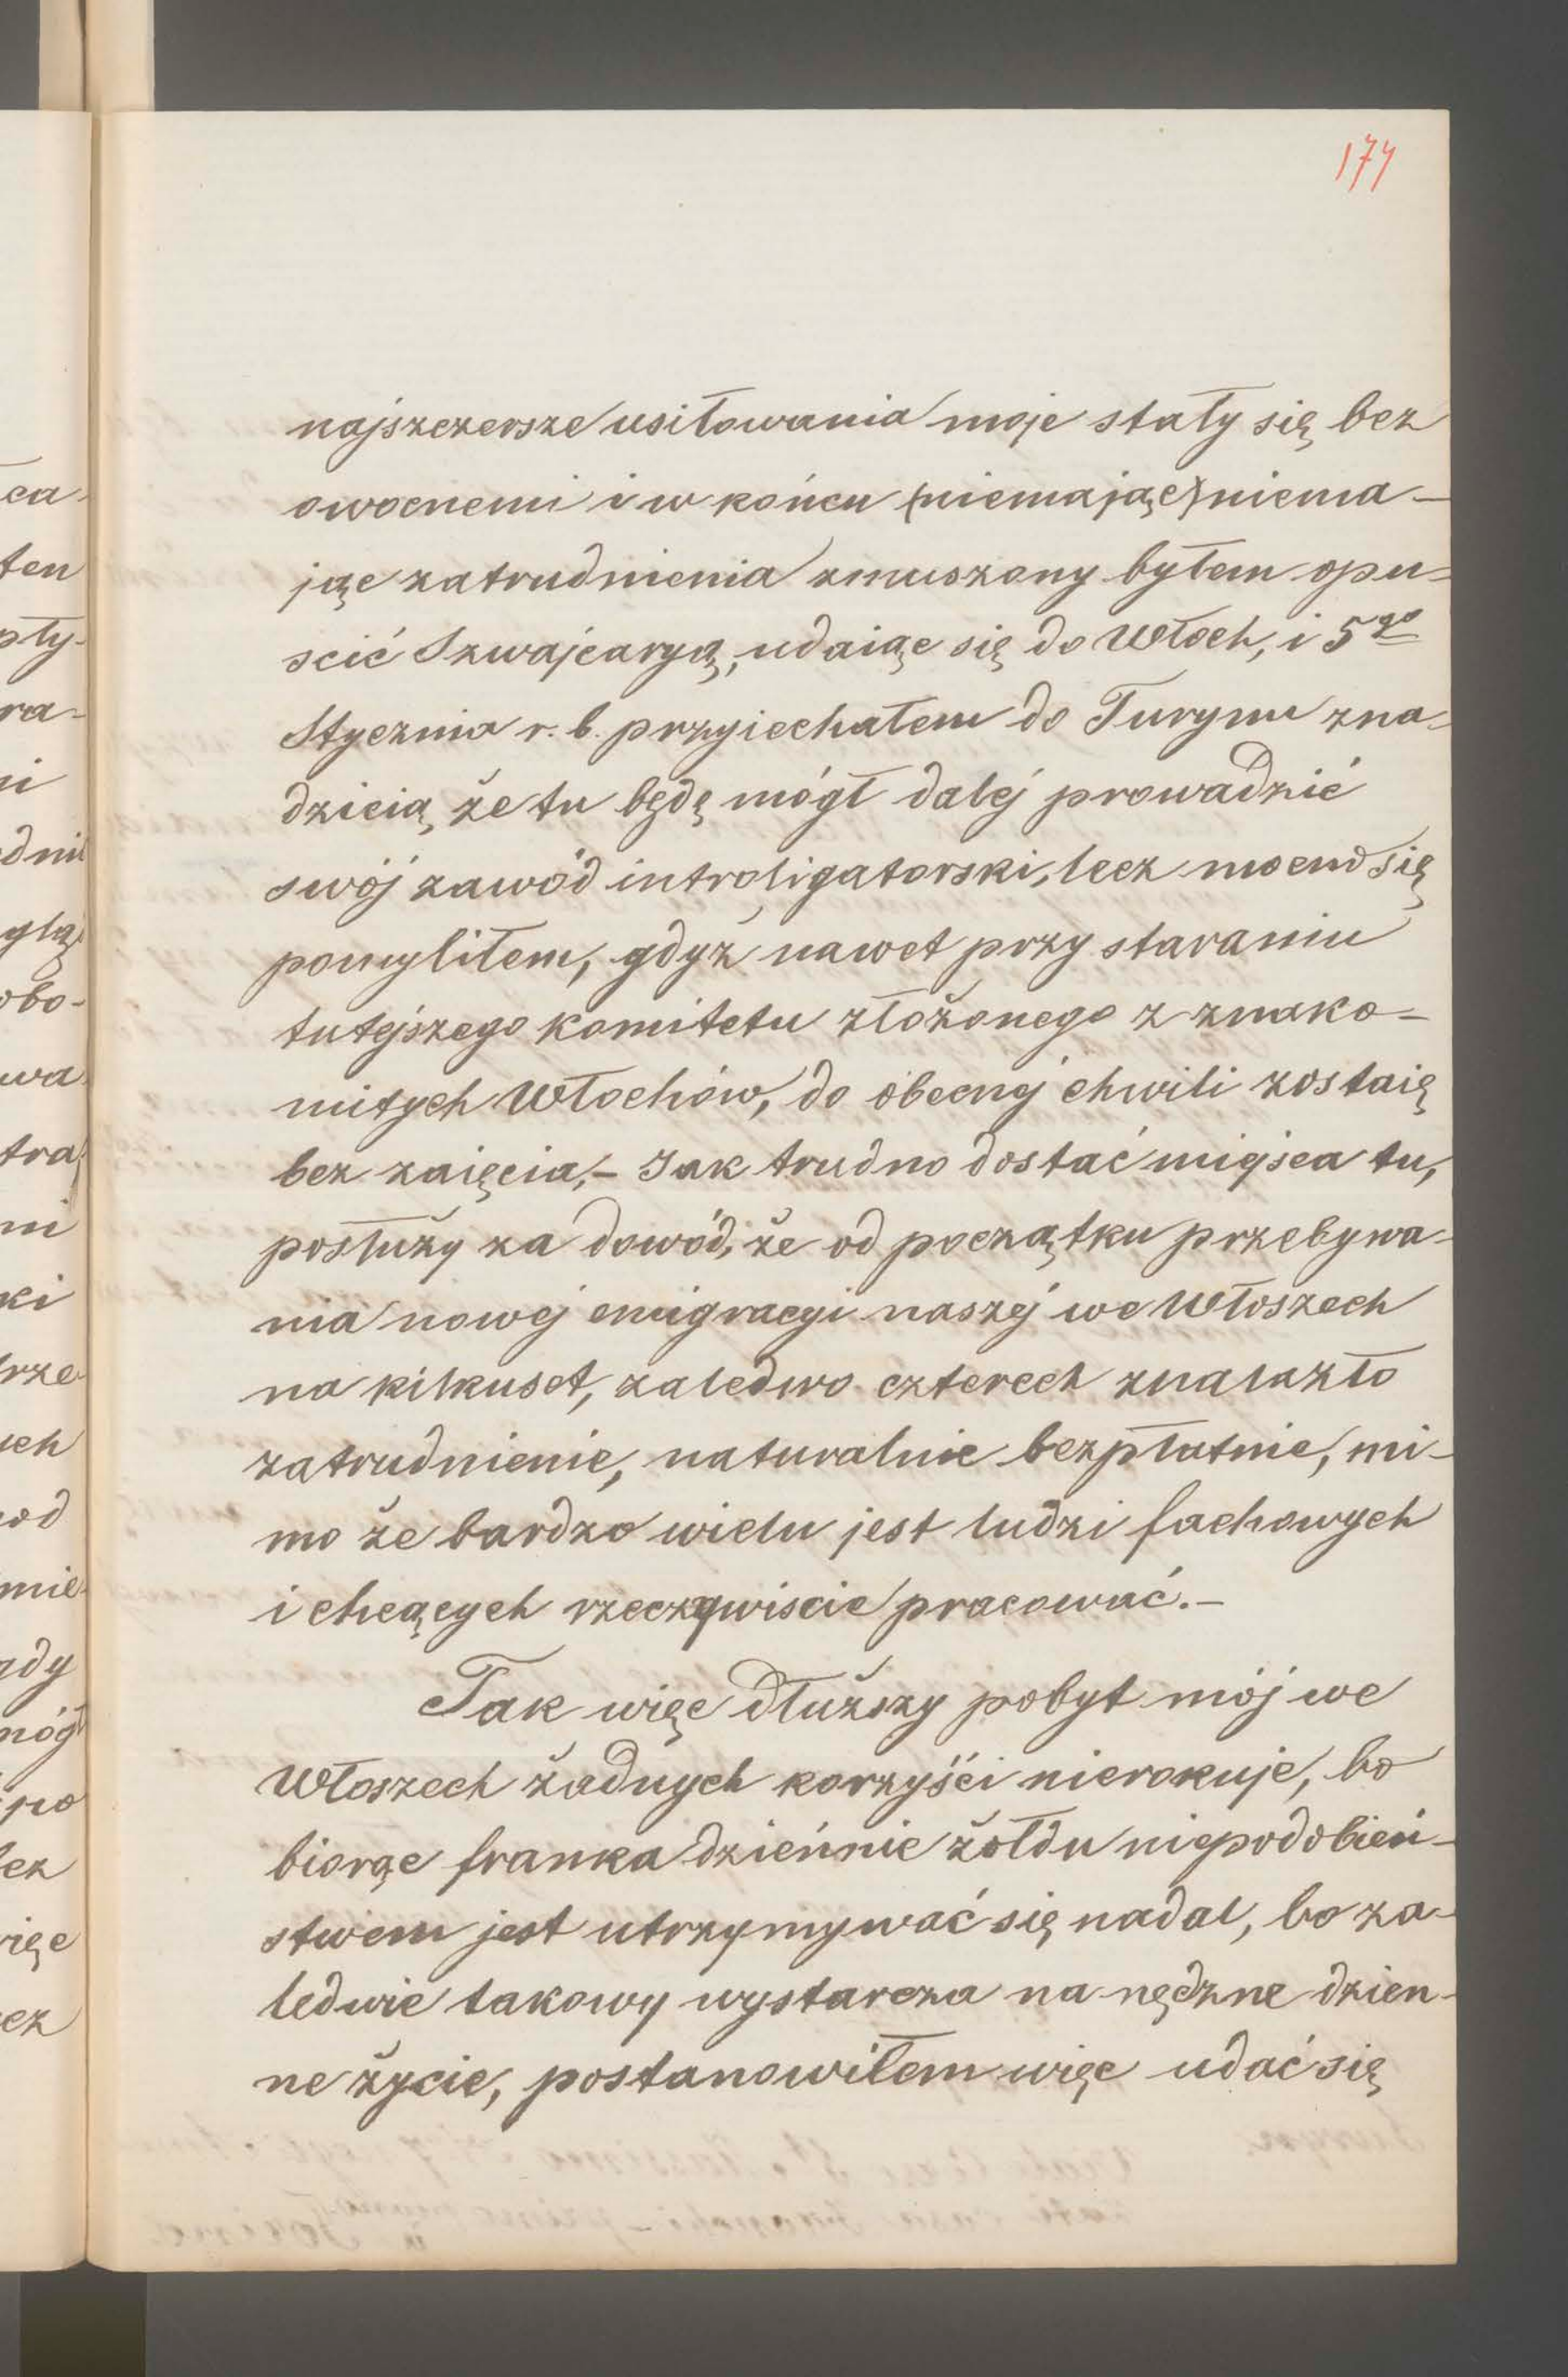 177
najszczersze usiłowania moje stały się bez
owocnemi i w końcu (niemając) niema-
jąc zatrudnienia zmuszony byłem opu-
scić Szwajcaryą, udaiąc się do Włoch, i 5go
Stycznia r. b. przyiechałem do Turynu zna-
dzieią, że tu będę mógł dalej prowadzić
swój zawód introligatorski, lecz mocno się
pomyliłem, gdyż nawet przy staraniu
tutejszego komitetu złożonego z znako-
mitych Włochów, do obecnej chwili zostaię
bez zaięcia,- Jak trudno dostać miejsca tu,
posłuży za dowód, że od początku przebywa-
nia nowej emigracyi naszej we Włoszech
na kilkuset, zaledwo czterech znalazło
zatrudnienie, naturalnie bezpłatnie, mi-
mo że bardzo wielu jest ludzi fachowych
i chcących rzeczywiscie pracować.-
Tak więc dłuższy pobyt mój we
Włoszech żadnych korzyści nierokuje, bo
biorąc franka dziennie żołdu niepodobień-
stwem jest utrzymywać się nadal, bo za-
ledwie takowy wystarcza na nędzne dzien-
ne życie, postanowiłem więc udać się
ca-
ten
pły-
ra-
ni
obo-
wa
tra
ni
ki
rze
ych
od
mie
gdy
móg
po
lez
ięc
ez